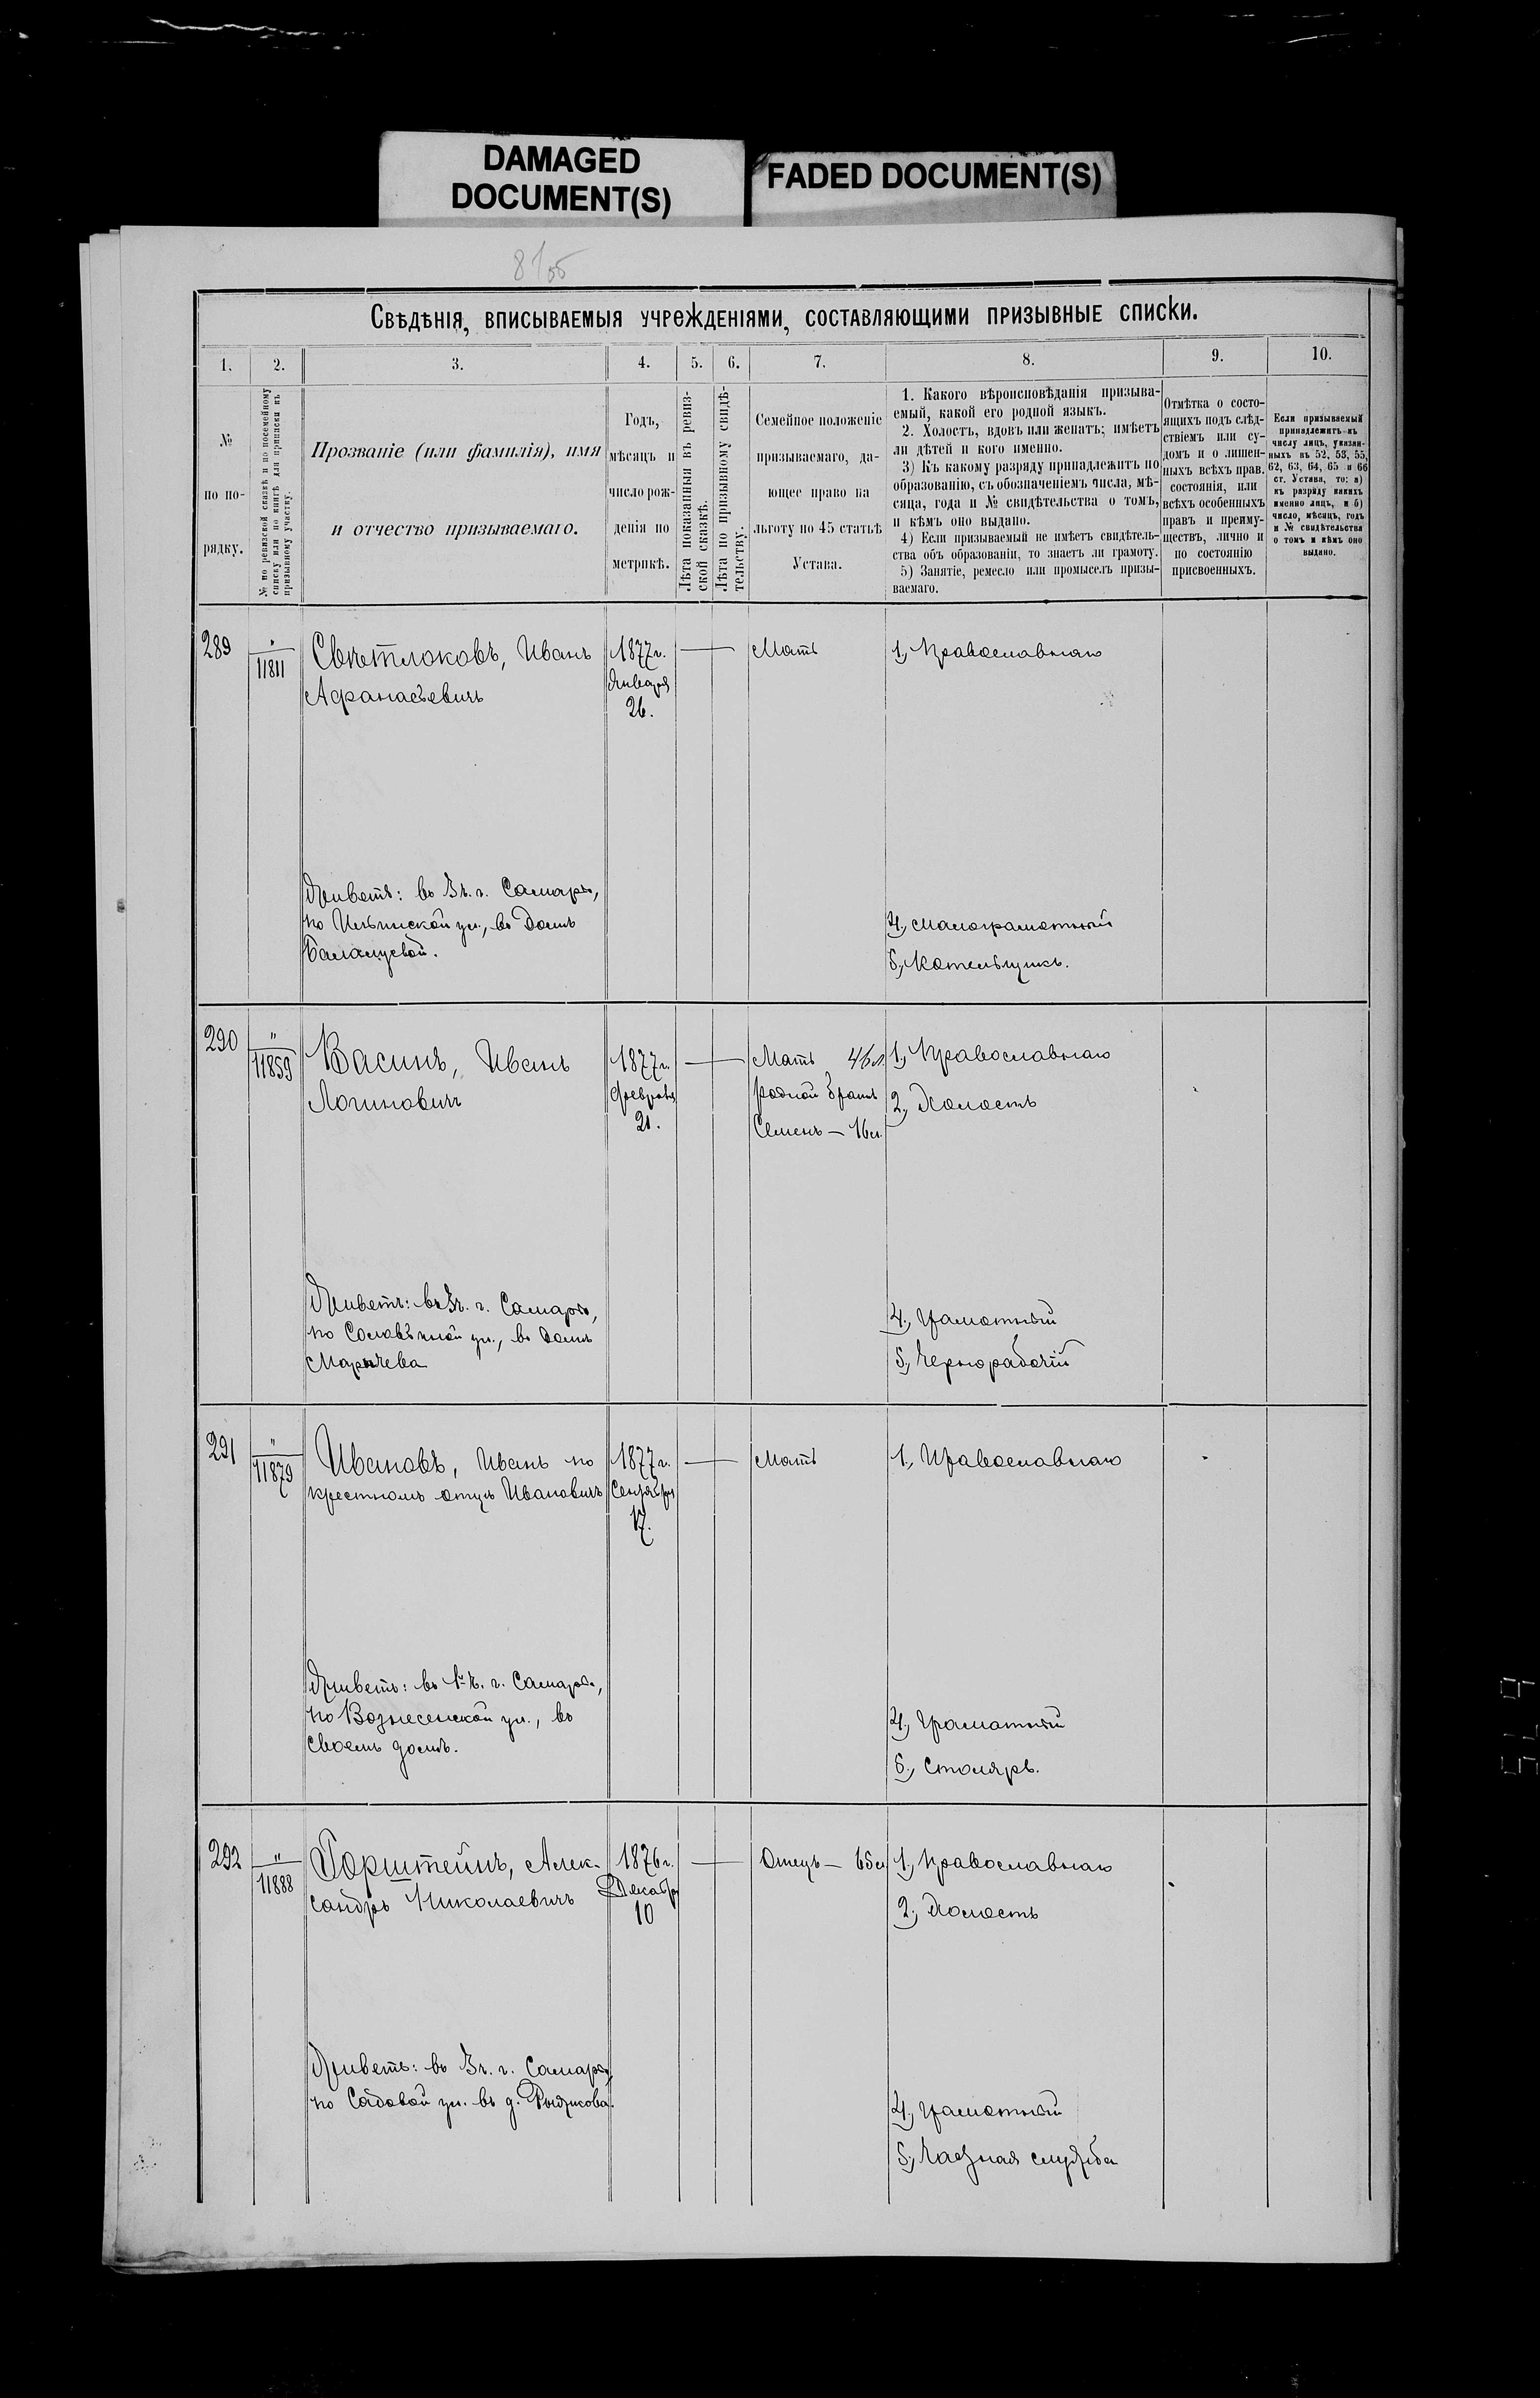 DAMAGED
DOCUMENT(S)
FADED DOCUMENT(S)
Свѣдѣнія, вписываемыя учрежденіями, составляющими призывные списки.
1. 2. 3. 4. 5. 6. 7. 8. 9. 10.
№
по по-
рядку.
№ по ревизской сказкѣ и по посемейному
списку или по книгѣ для приписки къ
призывному участку.
Прозваніе (или фамилія), имя
и отчество призываемаго.
Годъ,
мѣсяцъ и
число рож-
денія по
метрикѣ.
Лѣта показанныя въ ревиз-
ской сказкѣ.
Лѣта по призывному свидѣ-
тельству.
Семейное положеніе
призываемаго, да-
ющее право на
льготу по 45 статьѣ
Устава.
1. Какого вѣроисповѣданія призыва-
емый, какой его родной языкъ.
2. Холостъ, вдовъ или женатъ; имѣетъ
ли дѣтей и кого именно.
3) Къ какому разряду принадлежитъ по
образованію, съ обозначеніемъ числа, мѣ-
сяца, года и № свидѣтельства о томъ,
и кѣмъ оно выдано.
4) Если призываемый не имѣетъ свидѣтель-
ства объ образованіи, то знаетъ ли грамоту.
5) Занятіе, ремесло или промыселъ призы-
ваемаго.
Отмѣтка о состо-
ящихъ подъ слѣд-
ствіемъ или су-
домъ и о лишен-
ныхъ всѣхъ прав.
состоянія, или
всѣхъ особенныхъ
правъ и преиму-
ществъ, лично и
по состоянію
присвоенныхъ.
Если призываемый
принадлежитъ къ
числу лицъ, указан-
ныхъ въ 52, 53, 55,
62, 63, 64, 65 и 66
ст. Устава, то: а)
къ разряду какихъ
именно лицъ, и б)
число, мѣсяцъ, годъ
и № свидѣтельства
о томъ и кѣмъ оно
выдано.
289
"
11811
Свѣтлоковъ, Иванъ
Афанасьевичъ
1877 г.
Января
26.
Мать
1, Православнаго
Живетъ: въ 3 ч. г. Самары,
по Ильинской ул., въ домѣ
4, малограмотный
5, Котельщикъ.
290
"
11859
Васинъ, Иванъ
Логиновичъ
1877 г.
Февраля
21.
Мать 46 л.
родной братъ
Семенъ — 16 л.
1, Православнаго
2, Холостъ
Живетъ: въ 3 ч. г. Самары,
по Соловьиной ул., въ домѣ
Марычева
4, грамотный
5, Чернорабочій
291
"
11879
Ивановъ, Иванъ по
крестномъ отцѣ Ивановичъ
1877 г.
Сентября
17.
Мать
1, Православнаго
Живетъ: въ 1 ч. г. Самары,
по Вознесенской ул., въ
своемъ домѣ.
4, Грамотный
5, Столяръ.
292
"
11888
Горштейнъ, Алек-
сандръ Николаевичъ
1876 г.
Декабря
10
Отецъ — 65 л.
1, Православнаго
2, Холостъ
Живетъ: въ 3 ч. г. Самары,
по Садовой ул. въ д.
4, грамотный
5, Частная служба